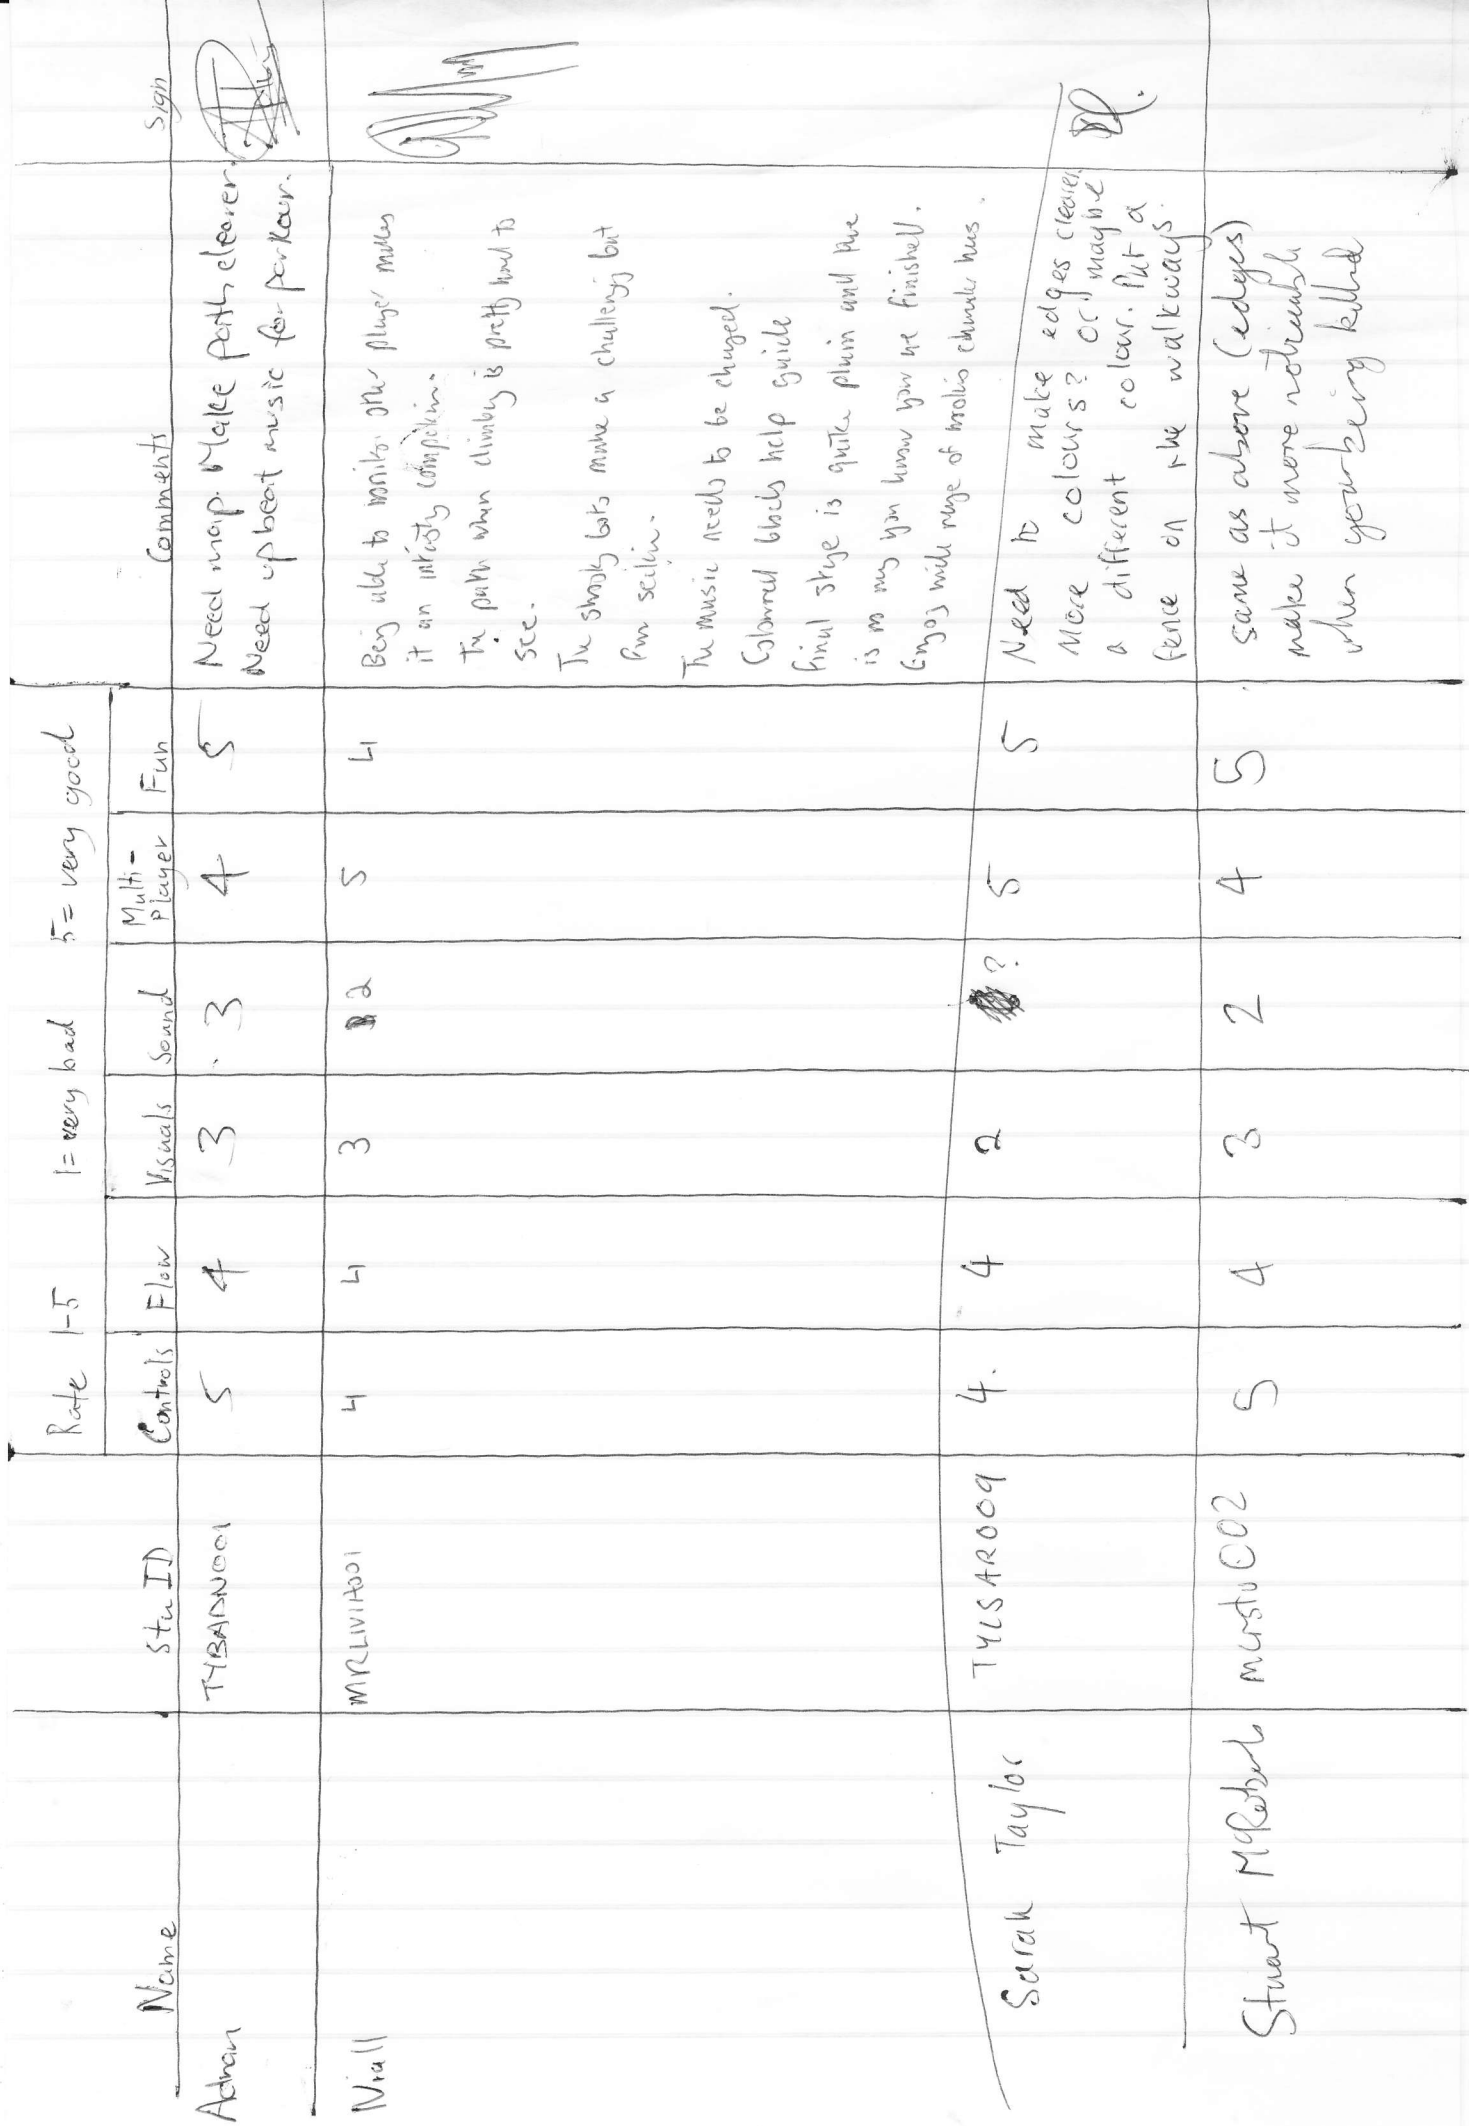 Rate 1-5 1= very bad 5= very good
Name Stu ID Controls Flow Visuals Sound Multi-
Player Fun Comments Sign
Adnan TYBADN001 5 4 3 3 4 5 Need map. Make path clearer.
Need upbeat music for parkour.
Niall 4 4 3 2 5 4 Being able to monitor other player makes
it an
The path when climbing is pretty hard to
see.
The bots make a challenging but
fun
The music needs to be changed.
Coloured blocks help guide
Final stage is quite plain and there
is no way you know you've finished.
Enjoy wide range of character has.
Sarah Taylor TYLSAR009 4. 4 2 ? 5 5 Need to make edges clearer.
More colours? or maybe
a different colour. Put a
fence on the walkways.
Stuart McRoberts mcrstu002 5 4 3 2 4 5 same as above (edges)
make it more noticeable
when your being killed